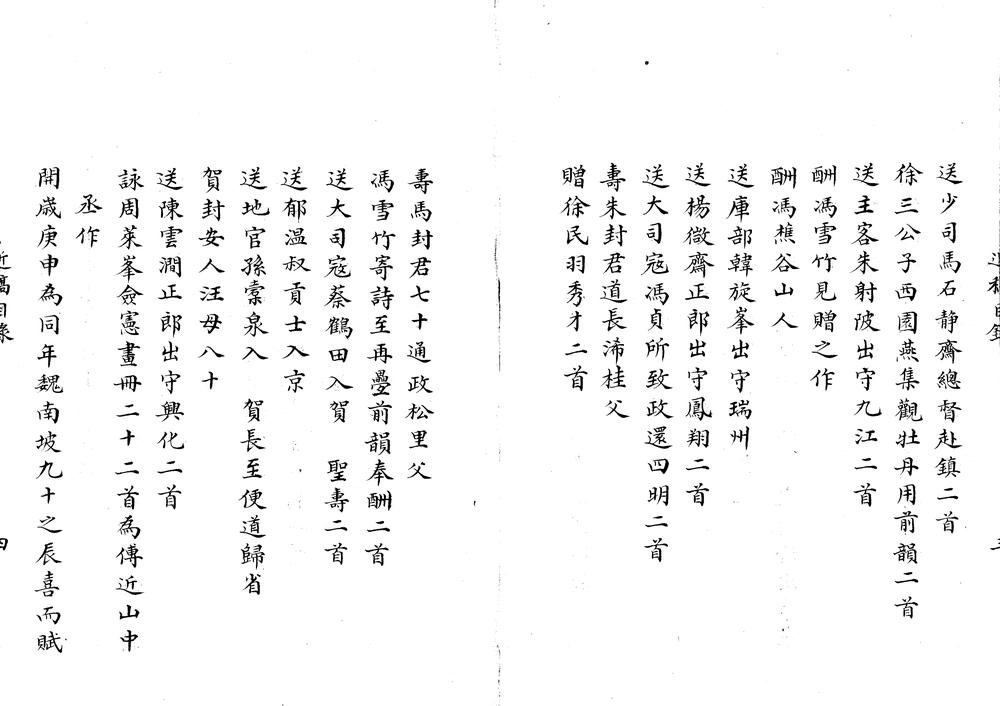 送少司馬石靜齋總督赴鎮二首
徐三公子西園燕集觀牡丹用前韻二首
送主客朱射陂出守九江二首
酬馮雪竹見贈之作
酬馮樵谷山人
送庫部韓旋峯出守瑞州
送楊徵齋正郎出守鳳翔二首
送大司寇馮貞所致政還四明二首
壽朱封君道長沸桂父
贈徐民羽秀才二首
壽馬封君七十通政松里父
馮雪竹寄詩至再疊前韻奉酬二首
送大司寇蔡鶴田入賀 聖壽二首
送郁温叔貢士入京
送地官孫霱泉入 賀長至便道歸省
賀封安人汪母八十
送陳雲澗正郎出守興化二首
詠周萊峯僉憲畫冊二十二首為傅近山中
丞作
開歲庚申為同年魏南坡九十之辰喜而賦
近稿目錄
四